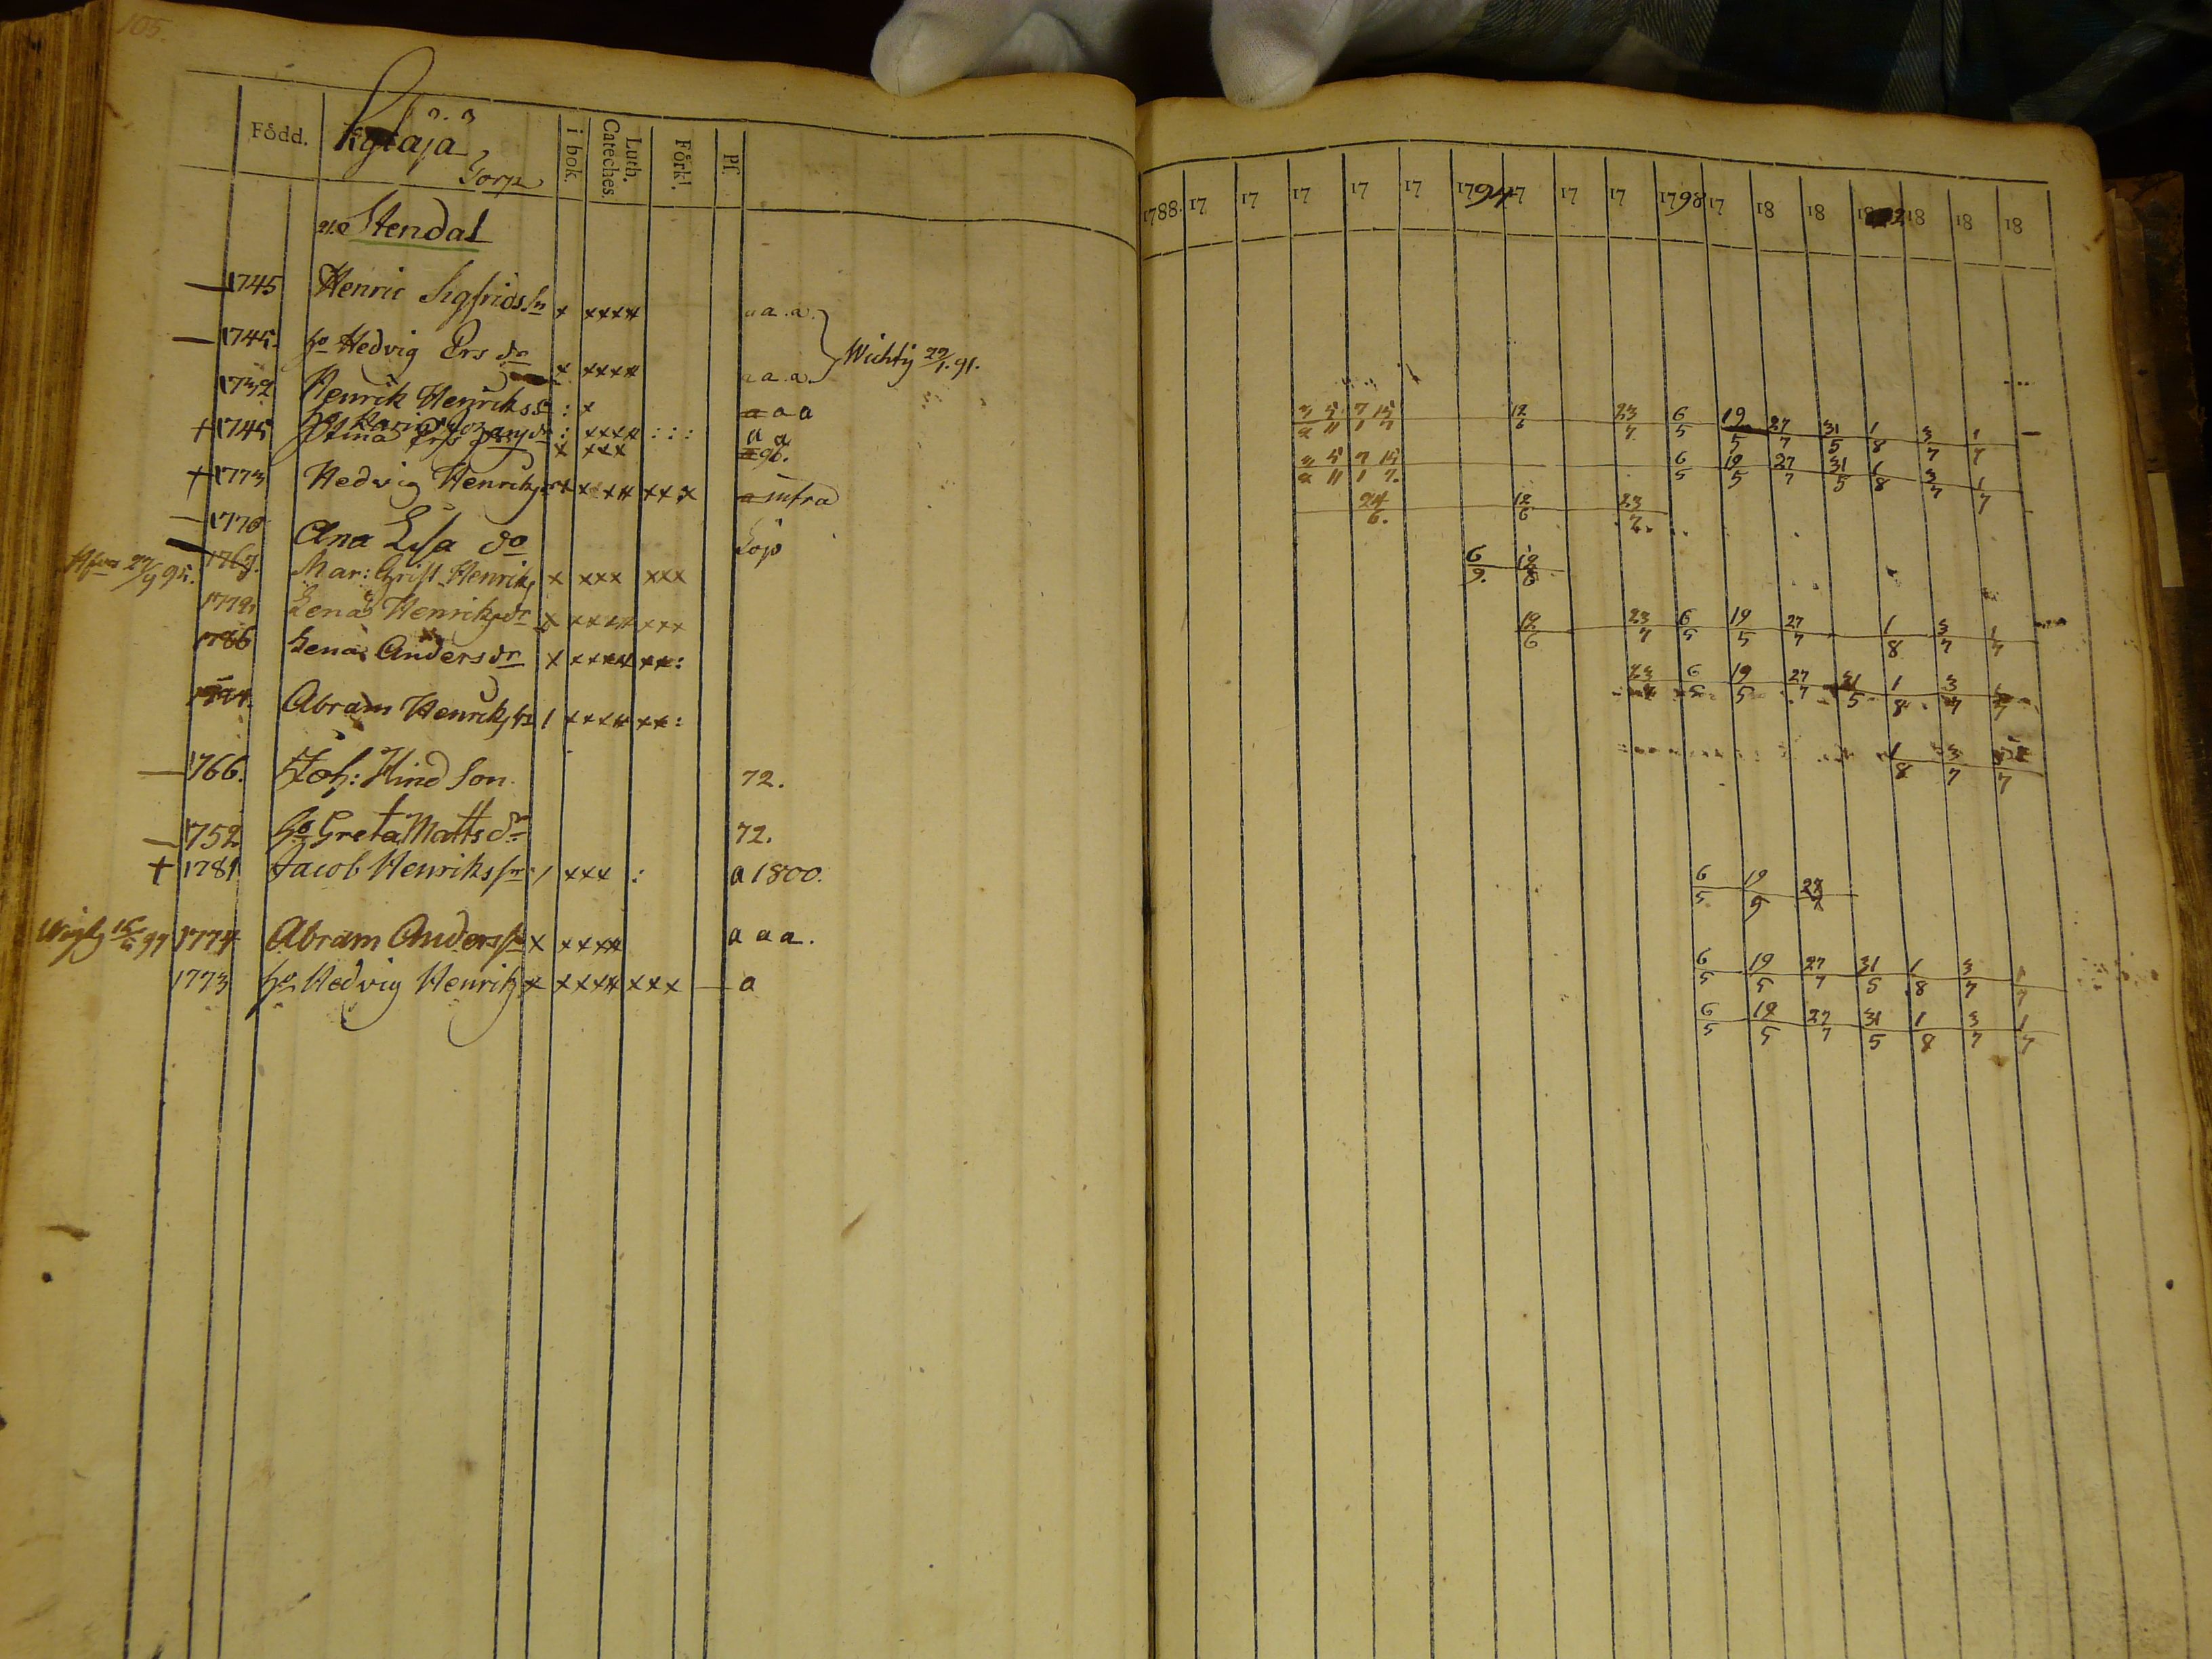 105.
Född.
Torp
i bok.
Luth. Cateches.
Förkl.
Ps.
1788. 17 17 17 17 17 1794 17 17 17 1798 17 18 18 18 18 18 18
Stendal
1745 Henric Sigfridss:n x xxxx a a. a.
1745. ho Hedvig Ers dr x xxxx a a. a. Wichty 22/1. 91.
1739 Henrik Henrikss : x a a a
+ 1745 : xxxx : : : a a
Stina x xxx 96.
+ 1773 Hedvig Henriksdr x xxxx xxx a infra
1770 Ana Lisa do Löp
27/9 95. 1767. Mar: Christ. Henriks x xxx xxx
Lena Henriksdr x xxxx xxx
1786 Lena Anders dr x xxxx xx:
Abram Henriks sn / xxxx xx:
1766. Joh: Hind Son 72.
1752 ho Greta Matts dr 72.
+ 1781 Jacob Henriks sn / xxx : a 1800.
97 1774 Abram Anders sn x xxxx a a a.
1773 ho Hedvig Henriks x xxxx xxx — a
12/6 23/7 6/5 19/5 27/7 31/5 1/8 3/7 1/7
6/5 19/5 27/7 31/5 1/8 3/7 1/7
24/6. 12/6 23/7.
6/9. 12/6
12/6 23/7 6/5 19/5 27/7 1/8 3/7 1/7
23/7 6/5 19/5 27/7 31/5 1/8 3/7 1/7
1/8 3/7
6/5 19/5 27/7
6/5 19/5 27/7 31/5 1/8 3/7 1/7
6/5 19/5 27/7 31/5 1/8 3/7 1/7